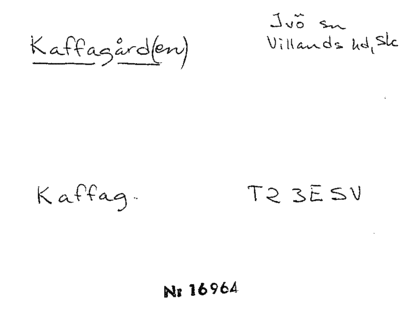 Kaffagård(en)
Ivö sn
Villands hd, Sk
Kaffag.
T2 3E SV
Nr 16964